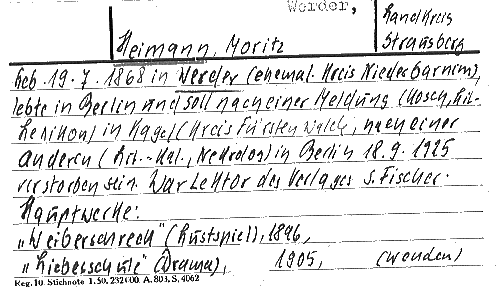 Werder,
Landkreis
Strausberg
Heimann, Moritz
Geb. 19.7.1868 in Werder (ehemal. Kreis Niederbarnim),
lebte in Berlin und soll nach einer Meldung (Kosch, Lit.-
Lexikon) in Kagel (Kreis Fürstenwalde, nach einer
anderen (Lit.-Kal., Nekrolog) in Berlin 18.9.1925
verstorben sein. War Lektor des Verlages S. Fischer.
Hauptwerke:
„Weiberschreck" (Lustspiel), 1896,
„Liebesschule" (Drama), 1905, (wenden)
Reg. 10. Stichnote 1. 50. 232000. A. 803. S. 4062